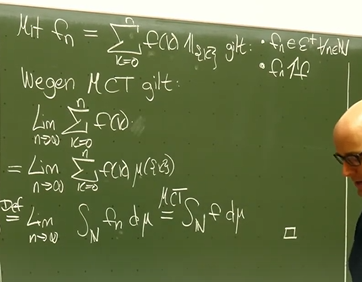 Mit fₙ = ∑ₖ₌₀ⁿ f(k) 𝟙_{k} gilt: • fₙ ∈ ℰ⁺ ∀n∈ℕ
• fₙ ↑ f
Wegen MCT gilt:
Lim_{n→∞} ∑ₖ₌₀ⁿ f(k)
= Lim_{n→∞} ∑ₖ₌₀ⁿ f(k) μ({k})
Def = Lim_{n→∞} ∫_ℕ fₙ dμ MCT = ∫_ℕ f dμ □